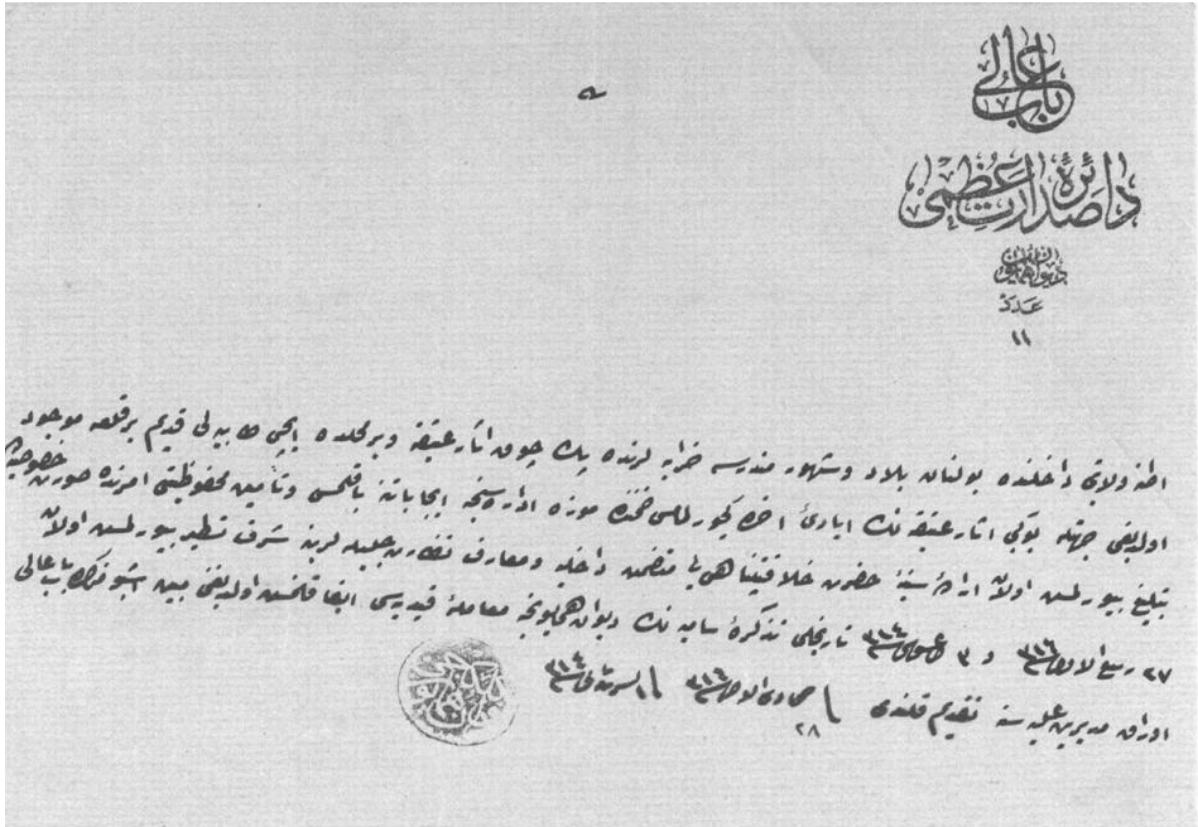 باب عالی
دائرهٔ صدارت عظمی
دیوان همایون
عدد
١١
اطنه ولایتی داخلنده بولنان بلاد و مشهور مندرسه خرابه لرنده پك چوق اثار عتیقه و بر محلده ایچی قدیم بر قلعه موجود
اولدیغی جهتله بوكبی اثار عتیقه نك ایادئ اخره كچورلمامسی ضمننده موزه اداره سنجه ایجاباتنه باقلمسی و تأمین محفوظیتی امرنده خصوصیه
تبلیغ بیورلمش اولان ارادهٔ سنیهٔ حضرت خلافتپناهی یی متضمن داخلیه و معارف نظارت جلیله لرینه شرف تسطیر بیورلمش اولان
٢٧ ربیع الاول ٣١٦ و ٣ اغستوس ٣١٤ تاریخلی تذكرهٔ سامیه نك دیوان همایونجه معاملهٔ قیدیه سی ایفا قلنمش اولدیغی مبین اشبو مذكره باب عالی
اوراق مدیریت علیه سنه تقدیم قلندی ٢٨ جمادی الاول ٣١٦ ٣١٤